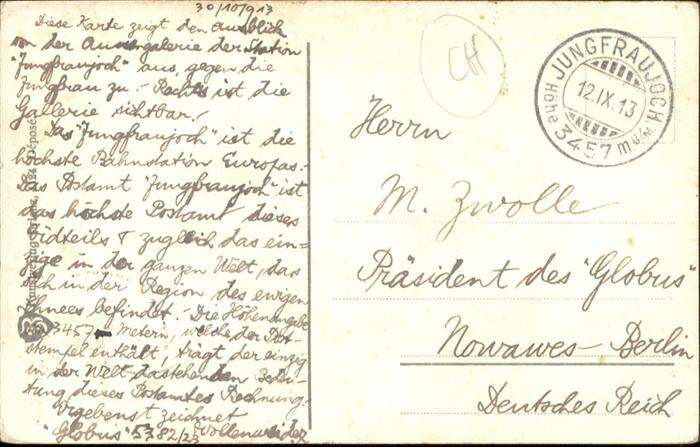 30/10/913
Diese Karte zeigt den Ausblick
von der Aussengalerie der Station
"Jungfraujoch" aus, gegen die
Jungfrau zu. Rechts ist die
Gallerie sichtbar!
Das "Jungfraujoch" ist die
höchste Bahnstation Europas.
Das Postamt "Jungfraujoch" ist
das höchste Postamt dieses
Erdteils & zugleich das ein-
zige in der ganzen Welt, das
sich in der Region des ewigen
Schnees befindet. Die Höhenangabe
3457 Metern, welche der Post-
stempel enthält, trägt der einzig
in der Welt dastehenden Bedeu-
tung dieses Postamtes Rechnung.
Ergebenst zeichnet
"Globus" 5382/23 Wollenweider
CH
JUNGFRAUJOCH
12.IX.13
Höhe 3457 m ü/M.
Herrn
M. Zwolle
Präsident des "Globus"
Nowawes-Berlin
Deutsches Reich
Déposé